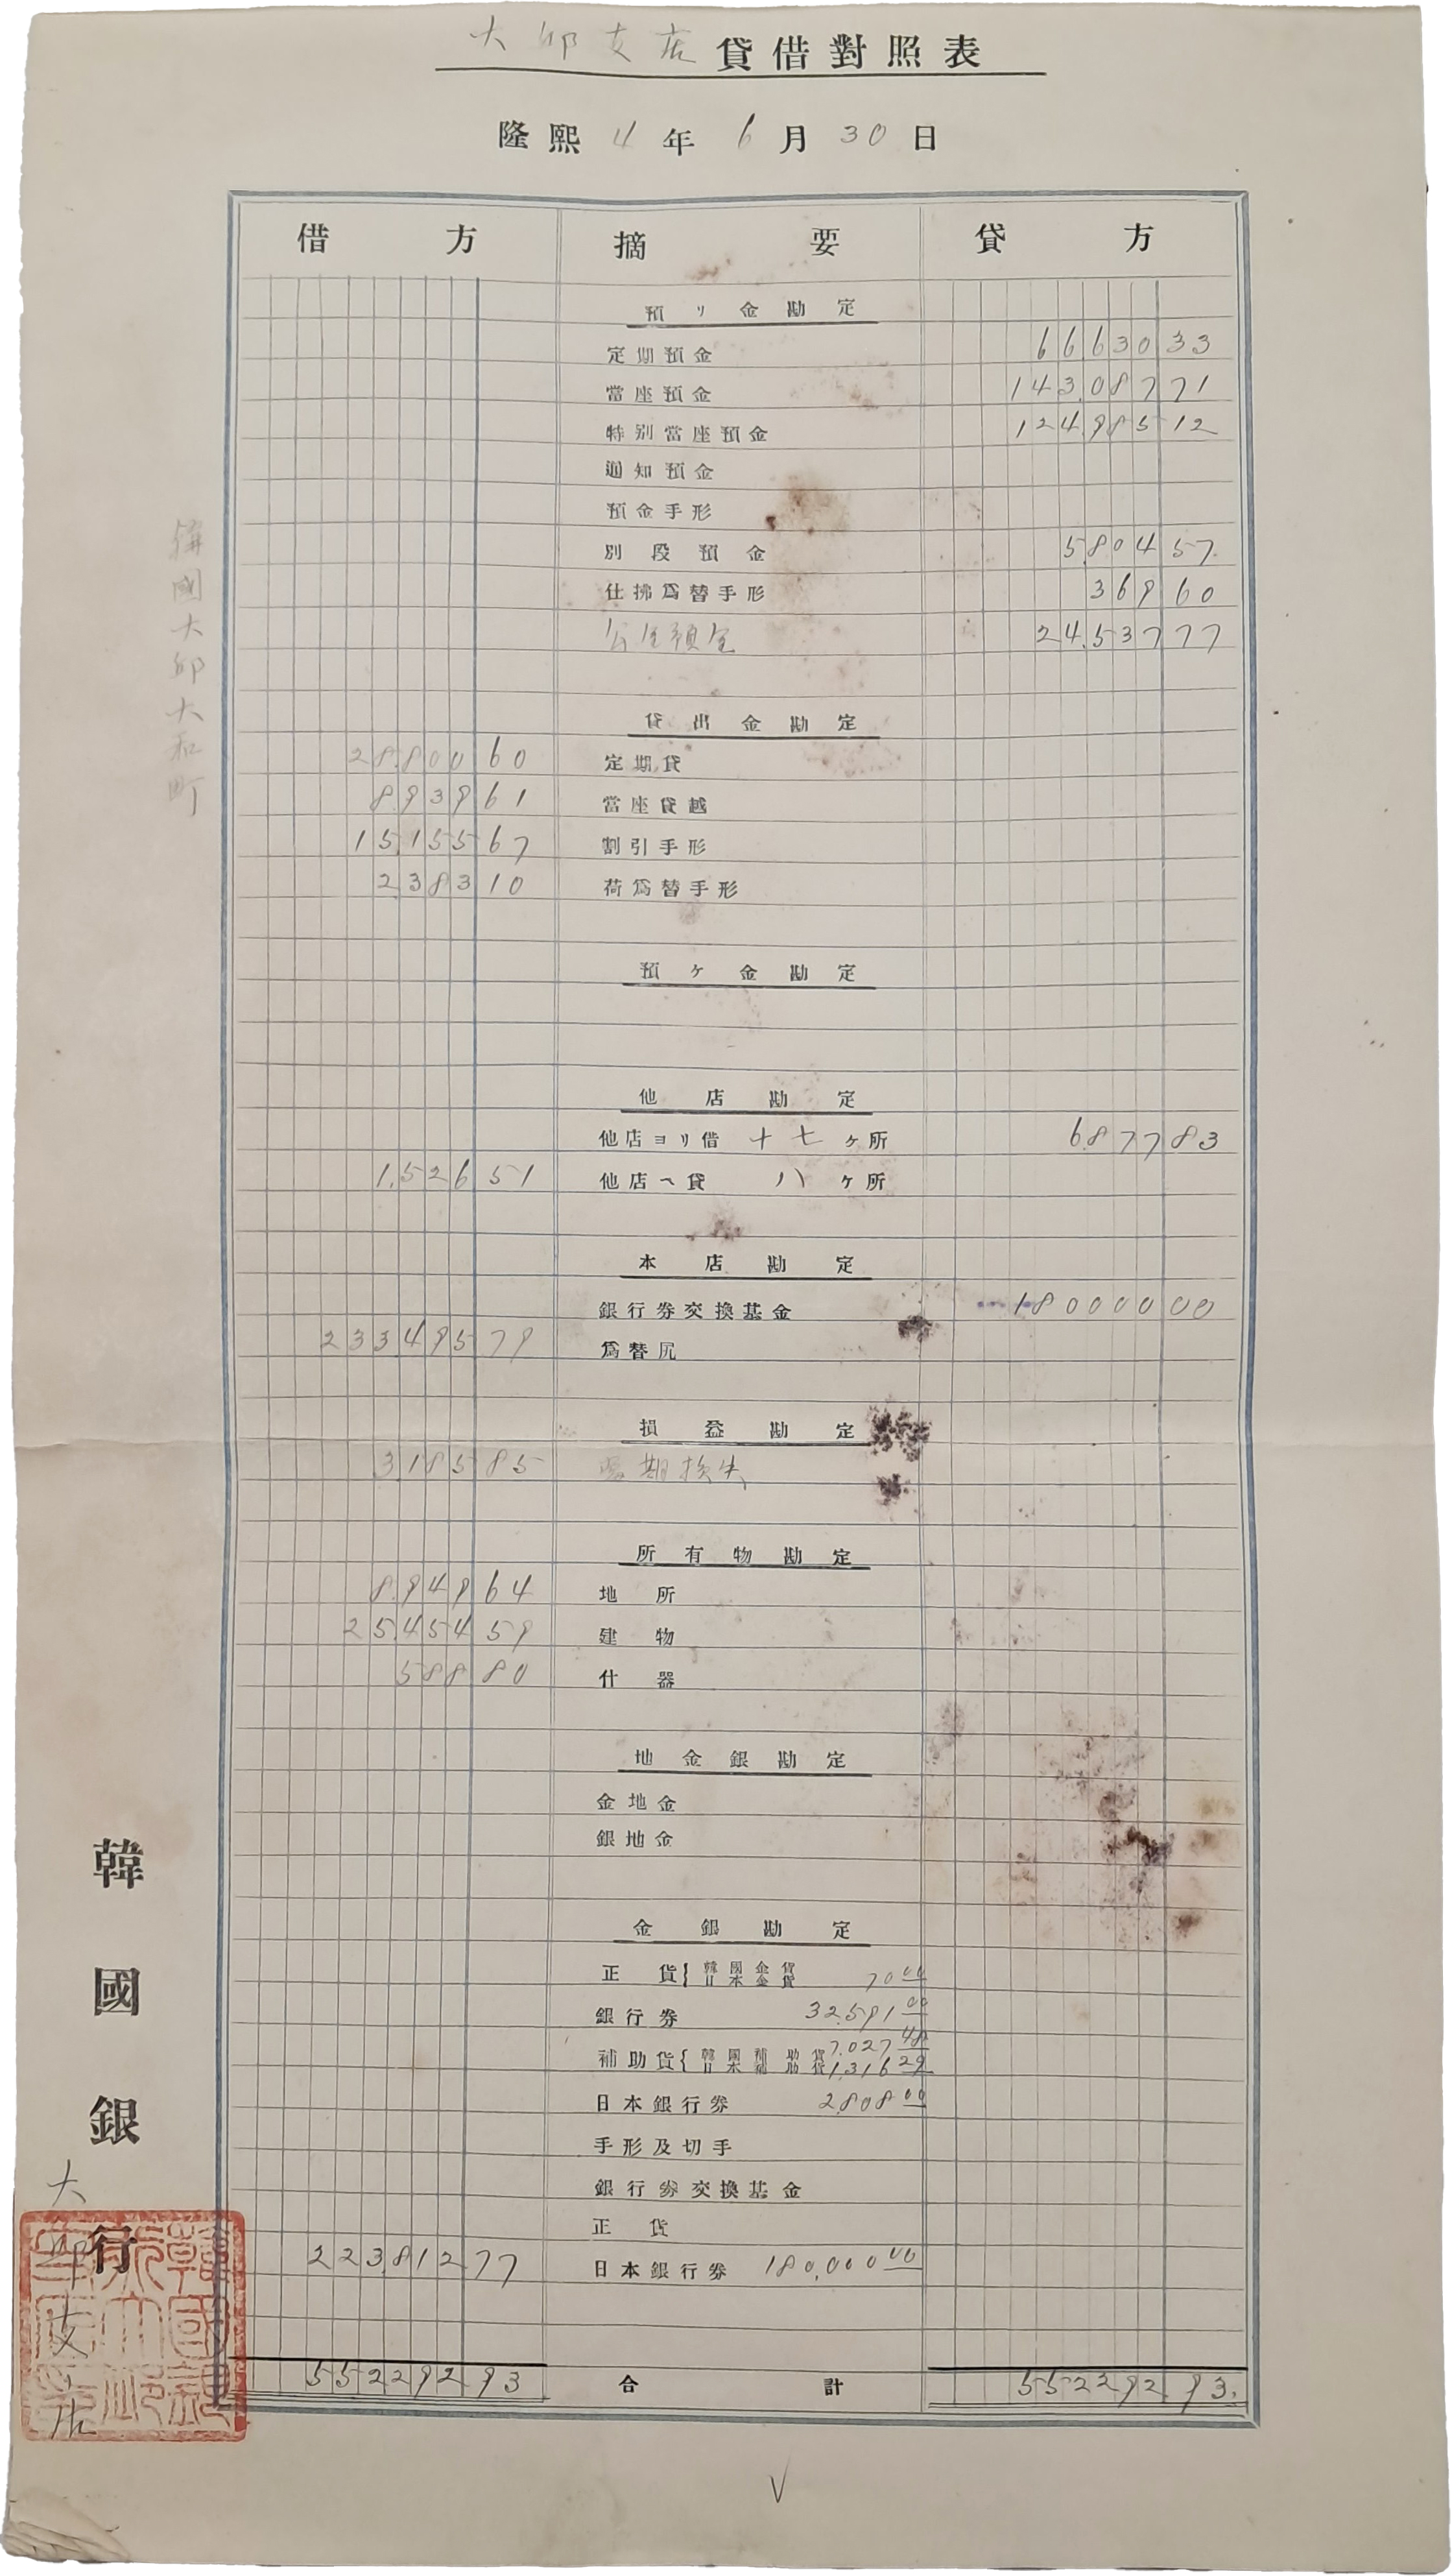 大邱支店貸借對照表
隆熙 4 年 6 月 30 日
借方 摘要 貸方
預リ金勘定
定期預金 66630 33
當座預金 143,087 71
特別當座預金 124,985 12
通知預金
預金手形
別段預金 5,804 57
仕拂爲替手形 369 60
公金預金 24,537 77
貸出金勘定
28,800 60 定期貸
8,939 61 當座貸越
15,155 67 割引手形
2,383 10 荷爲替手形
預ケ金勘定
他店勘定
他店ヨリ借 十七 ヶ所 6,877 83
1,526 51 他店ヘ貸 八 ヶ所
本店勘定
銀行券交換基金 180000 00
233,495 79 爲替尻
損益勘定
3185 85 當期損失
所有物勘定
8,949 64 地所
25,454 59 建物
588 80 什器
地金銀勘定
金地金
銀地金
金銀勘定
正貨{韓國金貨
日本金貨 70 00
銀行券 32,591 00
補助貨{韓國補助貨 7,027 48
日本補助貨 1,316 29
日本銀行券 2,808 00
手形及切手
銀行券交換基金
正貨
223,812 77 日本銀行券 180,000 00
552292 93 合計 552292 93
韓國大邱大和町
韓國銀行
大邱支店